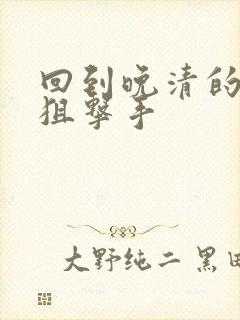 回到晚清的
狙击手
大野纯二 黑田